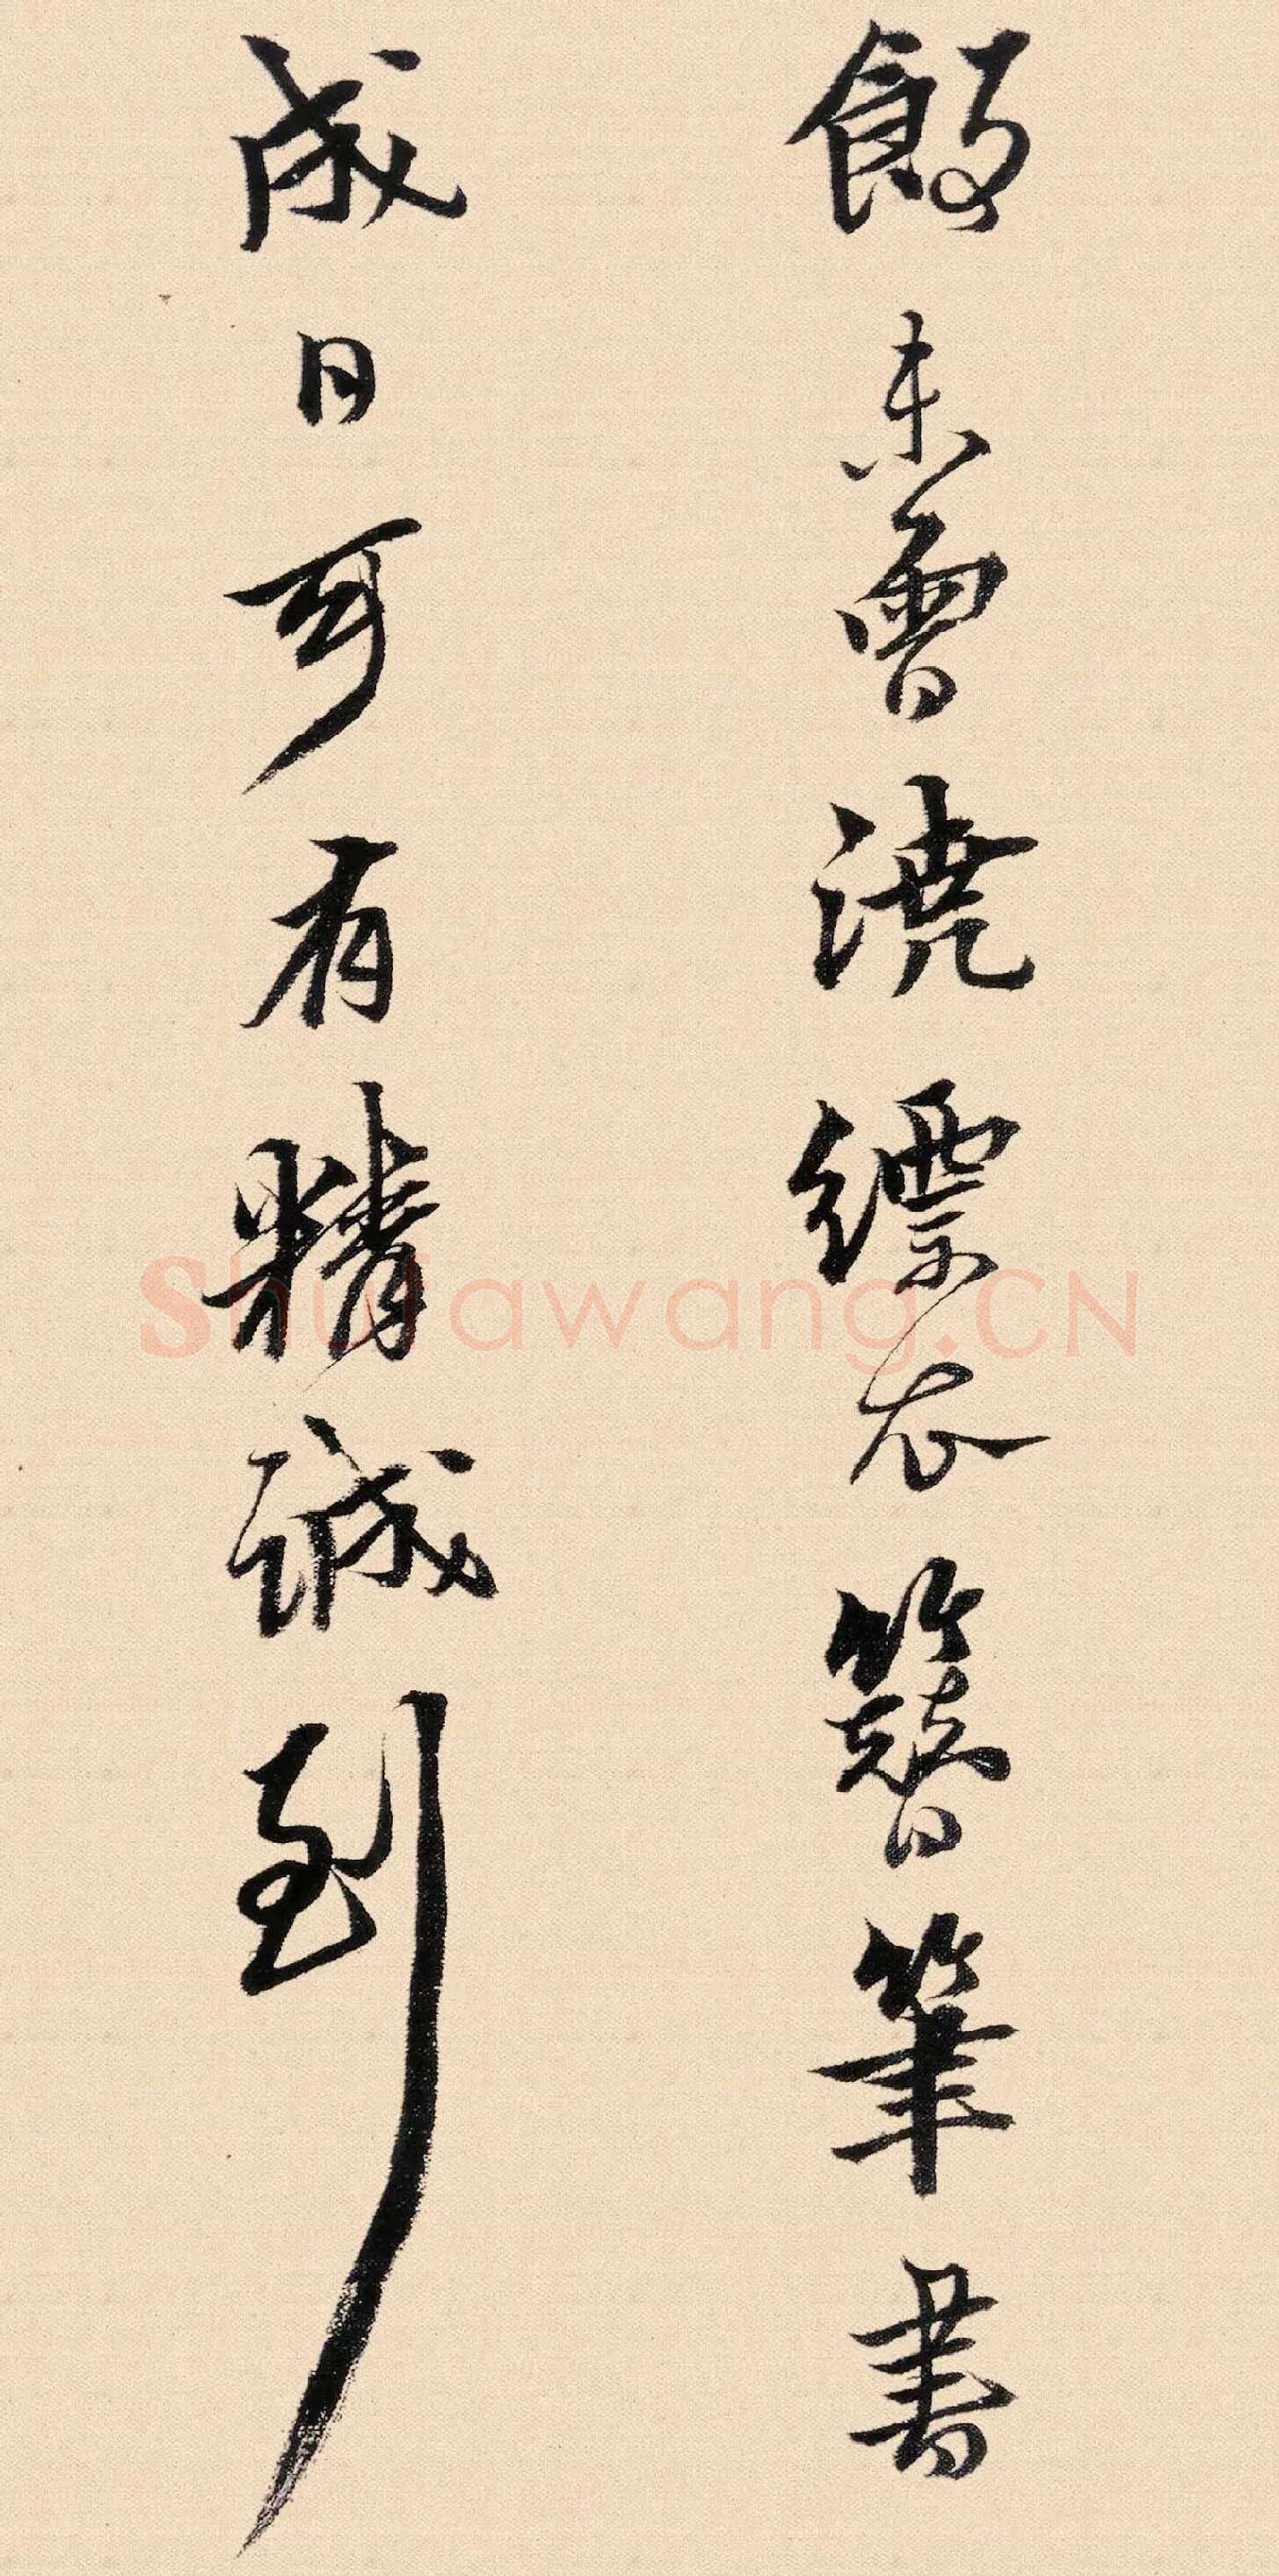 飯未曾澆縹衣簪筆書
成日可有精誠到
shufawang.CN